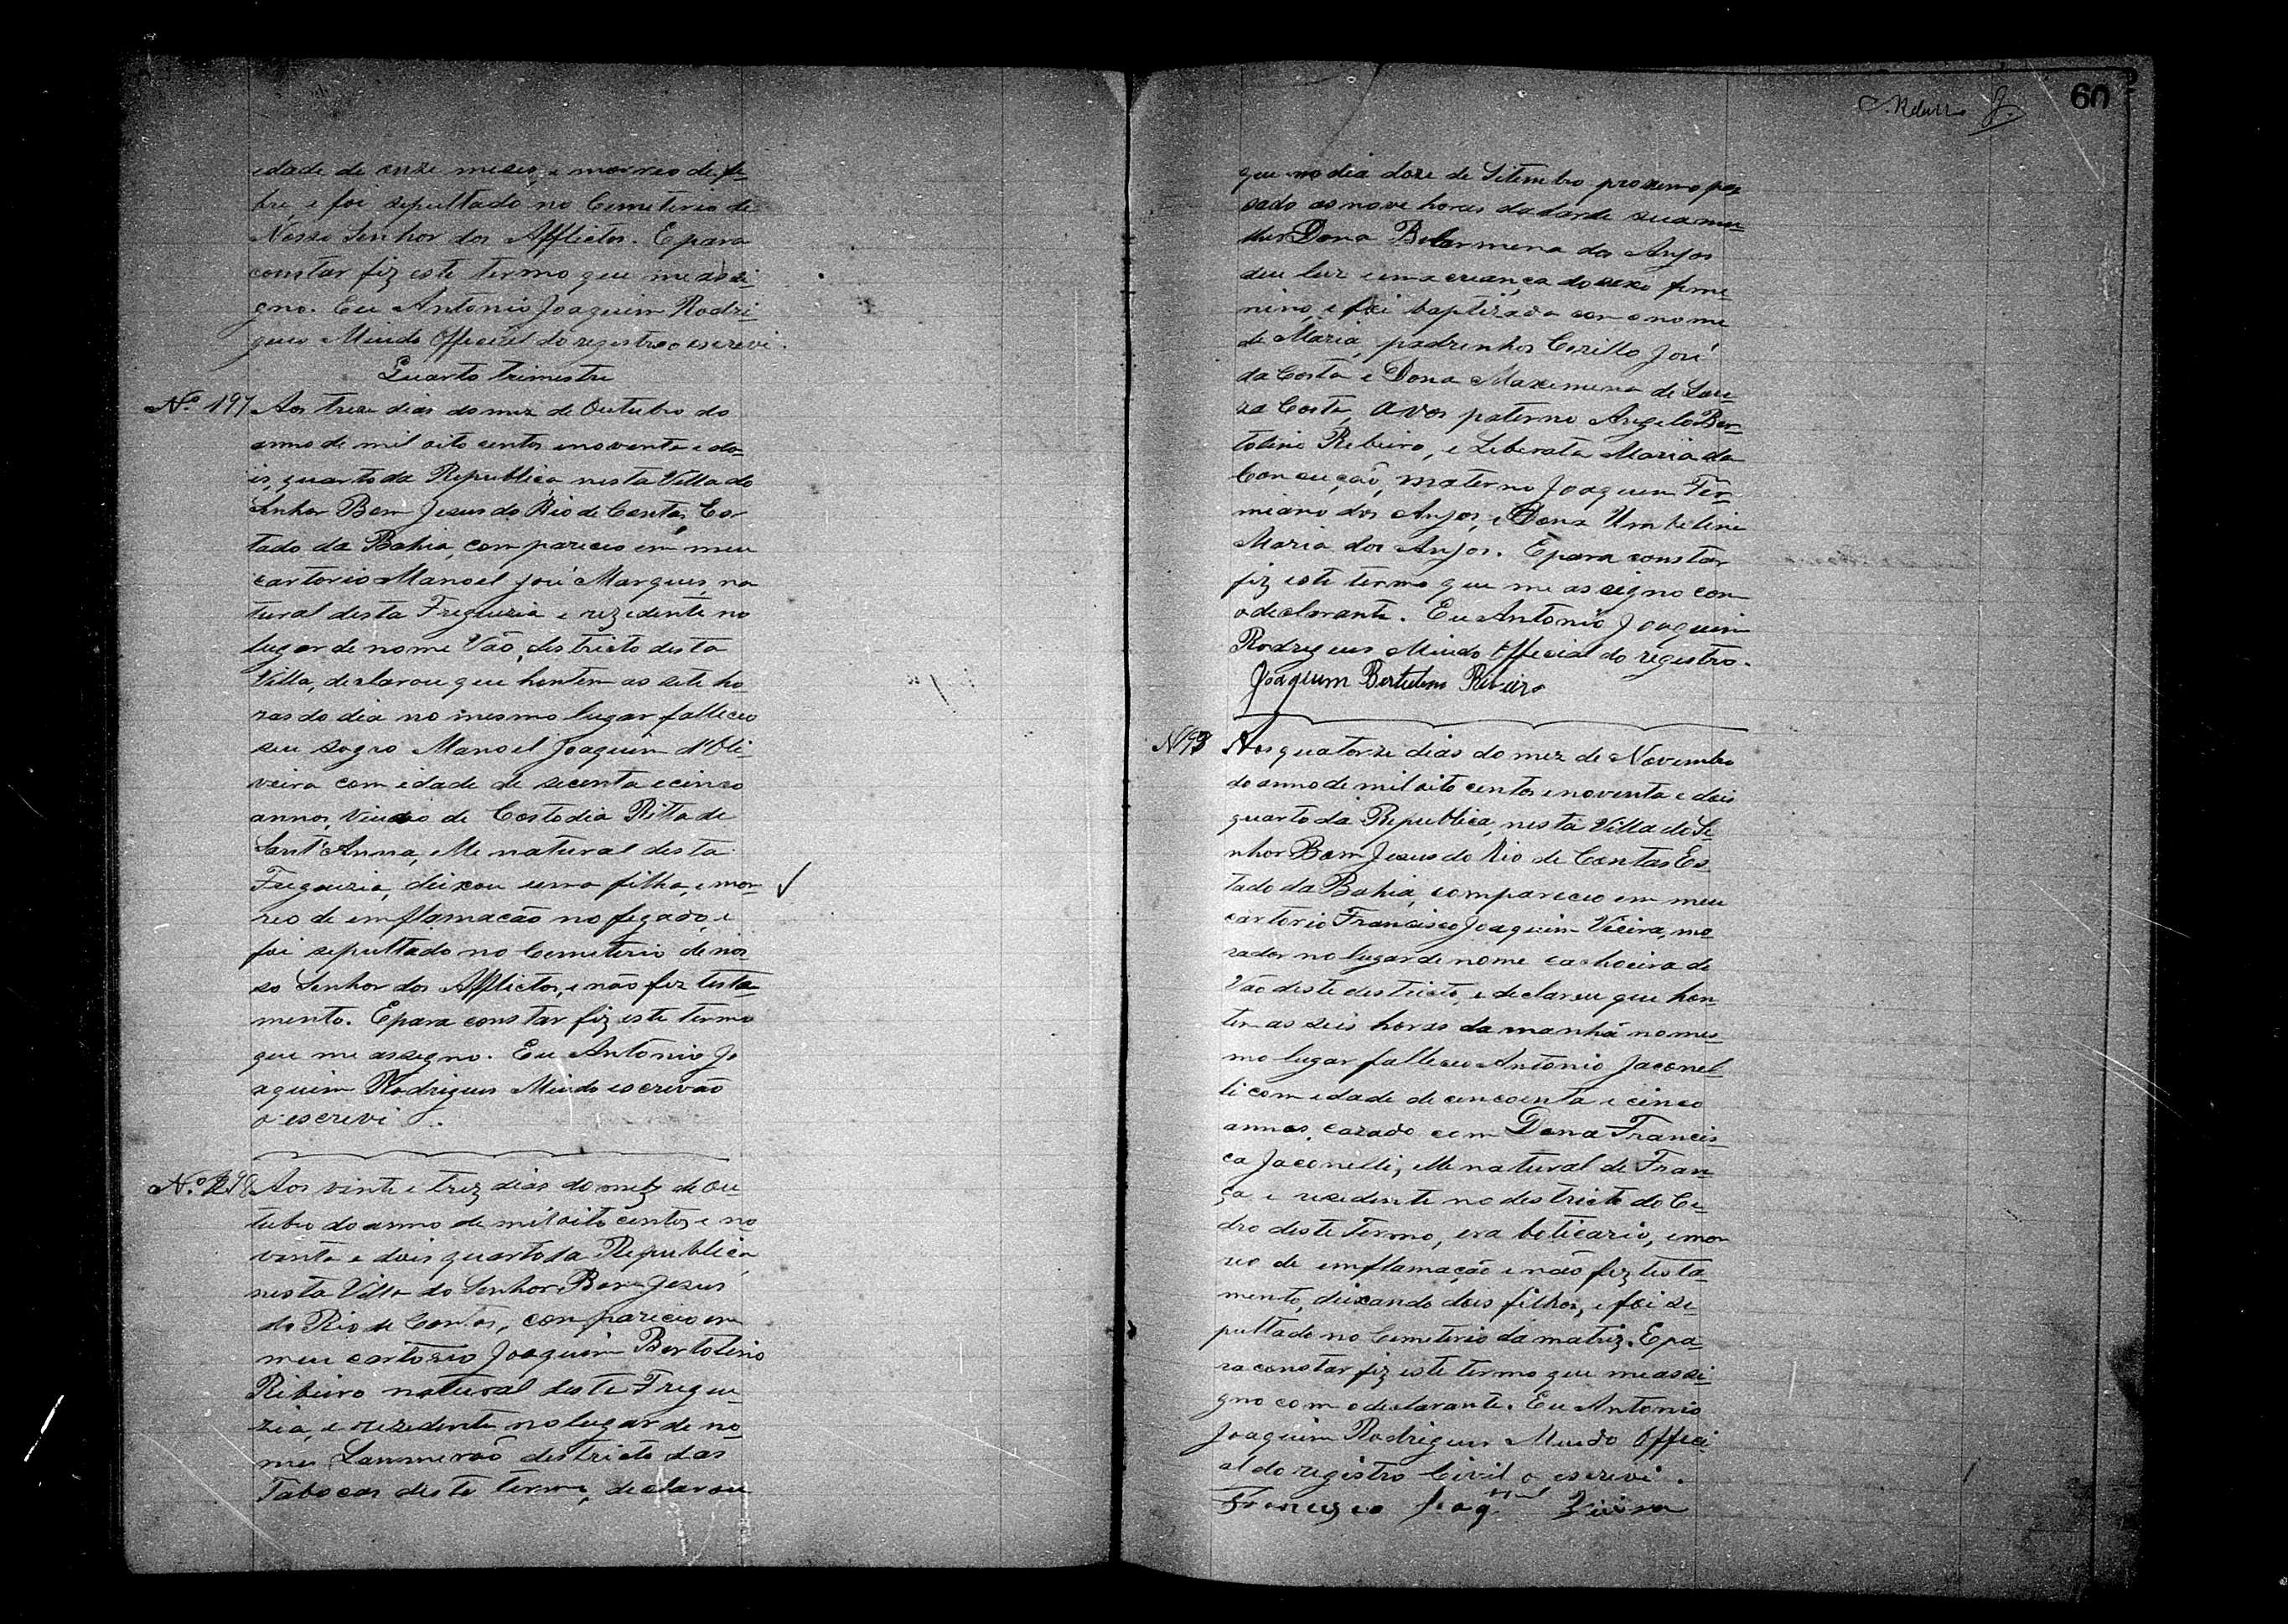 idade de onze meses, e morreo de fe-
bre, e foi sepultado no Cemeterio de
Nosso Senhor dos Afflictos. E para
constar fiz este termo que me assi-
gno. Eu Antonio Joaquim Rodri-
gues Miudo Official do registro o escrevi.
Quarto trimestre
Nº 197 Aos treze dias do mez de Outubro do
anno de mil oito centos e noventa e do-
is, quarto da Republica, nesta Villa do
Senhor Bom Jesus do Rio de Contas, Es-
tado da Bahia, compareceo em meu
cartorio Manoel José Marques, na
tural desta Freguezia e rezedente no
lugar de nome Vão, destricto desta
Villa, declarou que hontem as sete ho
ras do dia no mesmo lugar falleceo
seu sogro Manoel Joaquim d'Oli
veira com idade de secenta e cinco
annos, viuvo de Custodia Ritta de
Sant'Anna, elle natural desta
Freguezia, deixou uma filha, e mor
reo de emflamacão no fegado, e
foi sepultado no Cemeterio de nos
so Senhor dos Afflictos, e não fez testa-
mento. E para constar fiz este termo
que me assegno. Eu Antonio Jo
aquim Rodrigues Miudo escrevão
o escrevi.
Nº 198 Aos vinte e trez dias do mez de Ou-
tubro do anno de mil oito centos e no
venta e dois quarto da Republica,
nesta Villa do Senhor Bom Jesus
do Rio de Contas, compareceo em
meu cartorio Joaquim Bertolino
Ribeiro natural deste Fregue-
zia, e rezedente no lugar de no
me destricto das
Tabocas deste termo, declarou
60
que no dia doze de Setembro proximo pas
sado as nove horas da tarde sua mu-
lher Dona Belarmena dos Anjos
deu luz e uma creança do sexo feme-
nino, e foi baptizada com o nome
de Maria, padrinhos Cerillo José
da Costa e Dona Maxemena de Sou-
za Costa, avos paterno Angelo Ber-
tolino Ribeiro, e Leberata Maria da
Conceição, materno Joaquim Fer-
miano dos Anjos, e Dona Umbelina
Maria dos Anjos. E para constar
fiz este termo que me assigno com
o declarante. Eu Antonio Joaquim
Rodrigues Miudo Official do registro.
Joaquim Bertulino Ribeiro
Aos quatorze dias do mez de Novembro
do anno de mil oito centos e noventa e dois
quarto da Republica, nesta Villa do Se
nhor Bom Jesus do Rio de Contas Es
tado da Bahia, compareceo em meu
cartorio Francisco Joaquim Vieira, mo
rador no lugar de nome cachoeira do
Vão deste destricto, e declarou que hon
tem as seis horas da manhã no mes-
mo lugar falleceo Antonio Jaconel-
li com idade de cincoenta e cinco
annos, cazado com Dona Francis
ca Jaconelli, elle natural de Fran-
ça e rezedente no destricto do Ce-
dro deste termo, era boticario, e mor
reo de emflamação e não fez testa-
mento, deixando dois filhos, e foi se-
pultado no Cemeterio da matriz. E pa-
ra constar fiz este termo que me assi-
gno com o declarante. Eu Antonio
Joaquim Rodrigues Miudo Offici
al do registro Civil o escrevi.
Francisco Joaqm Vieira